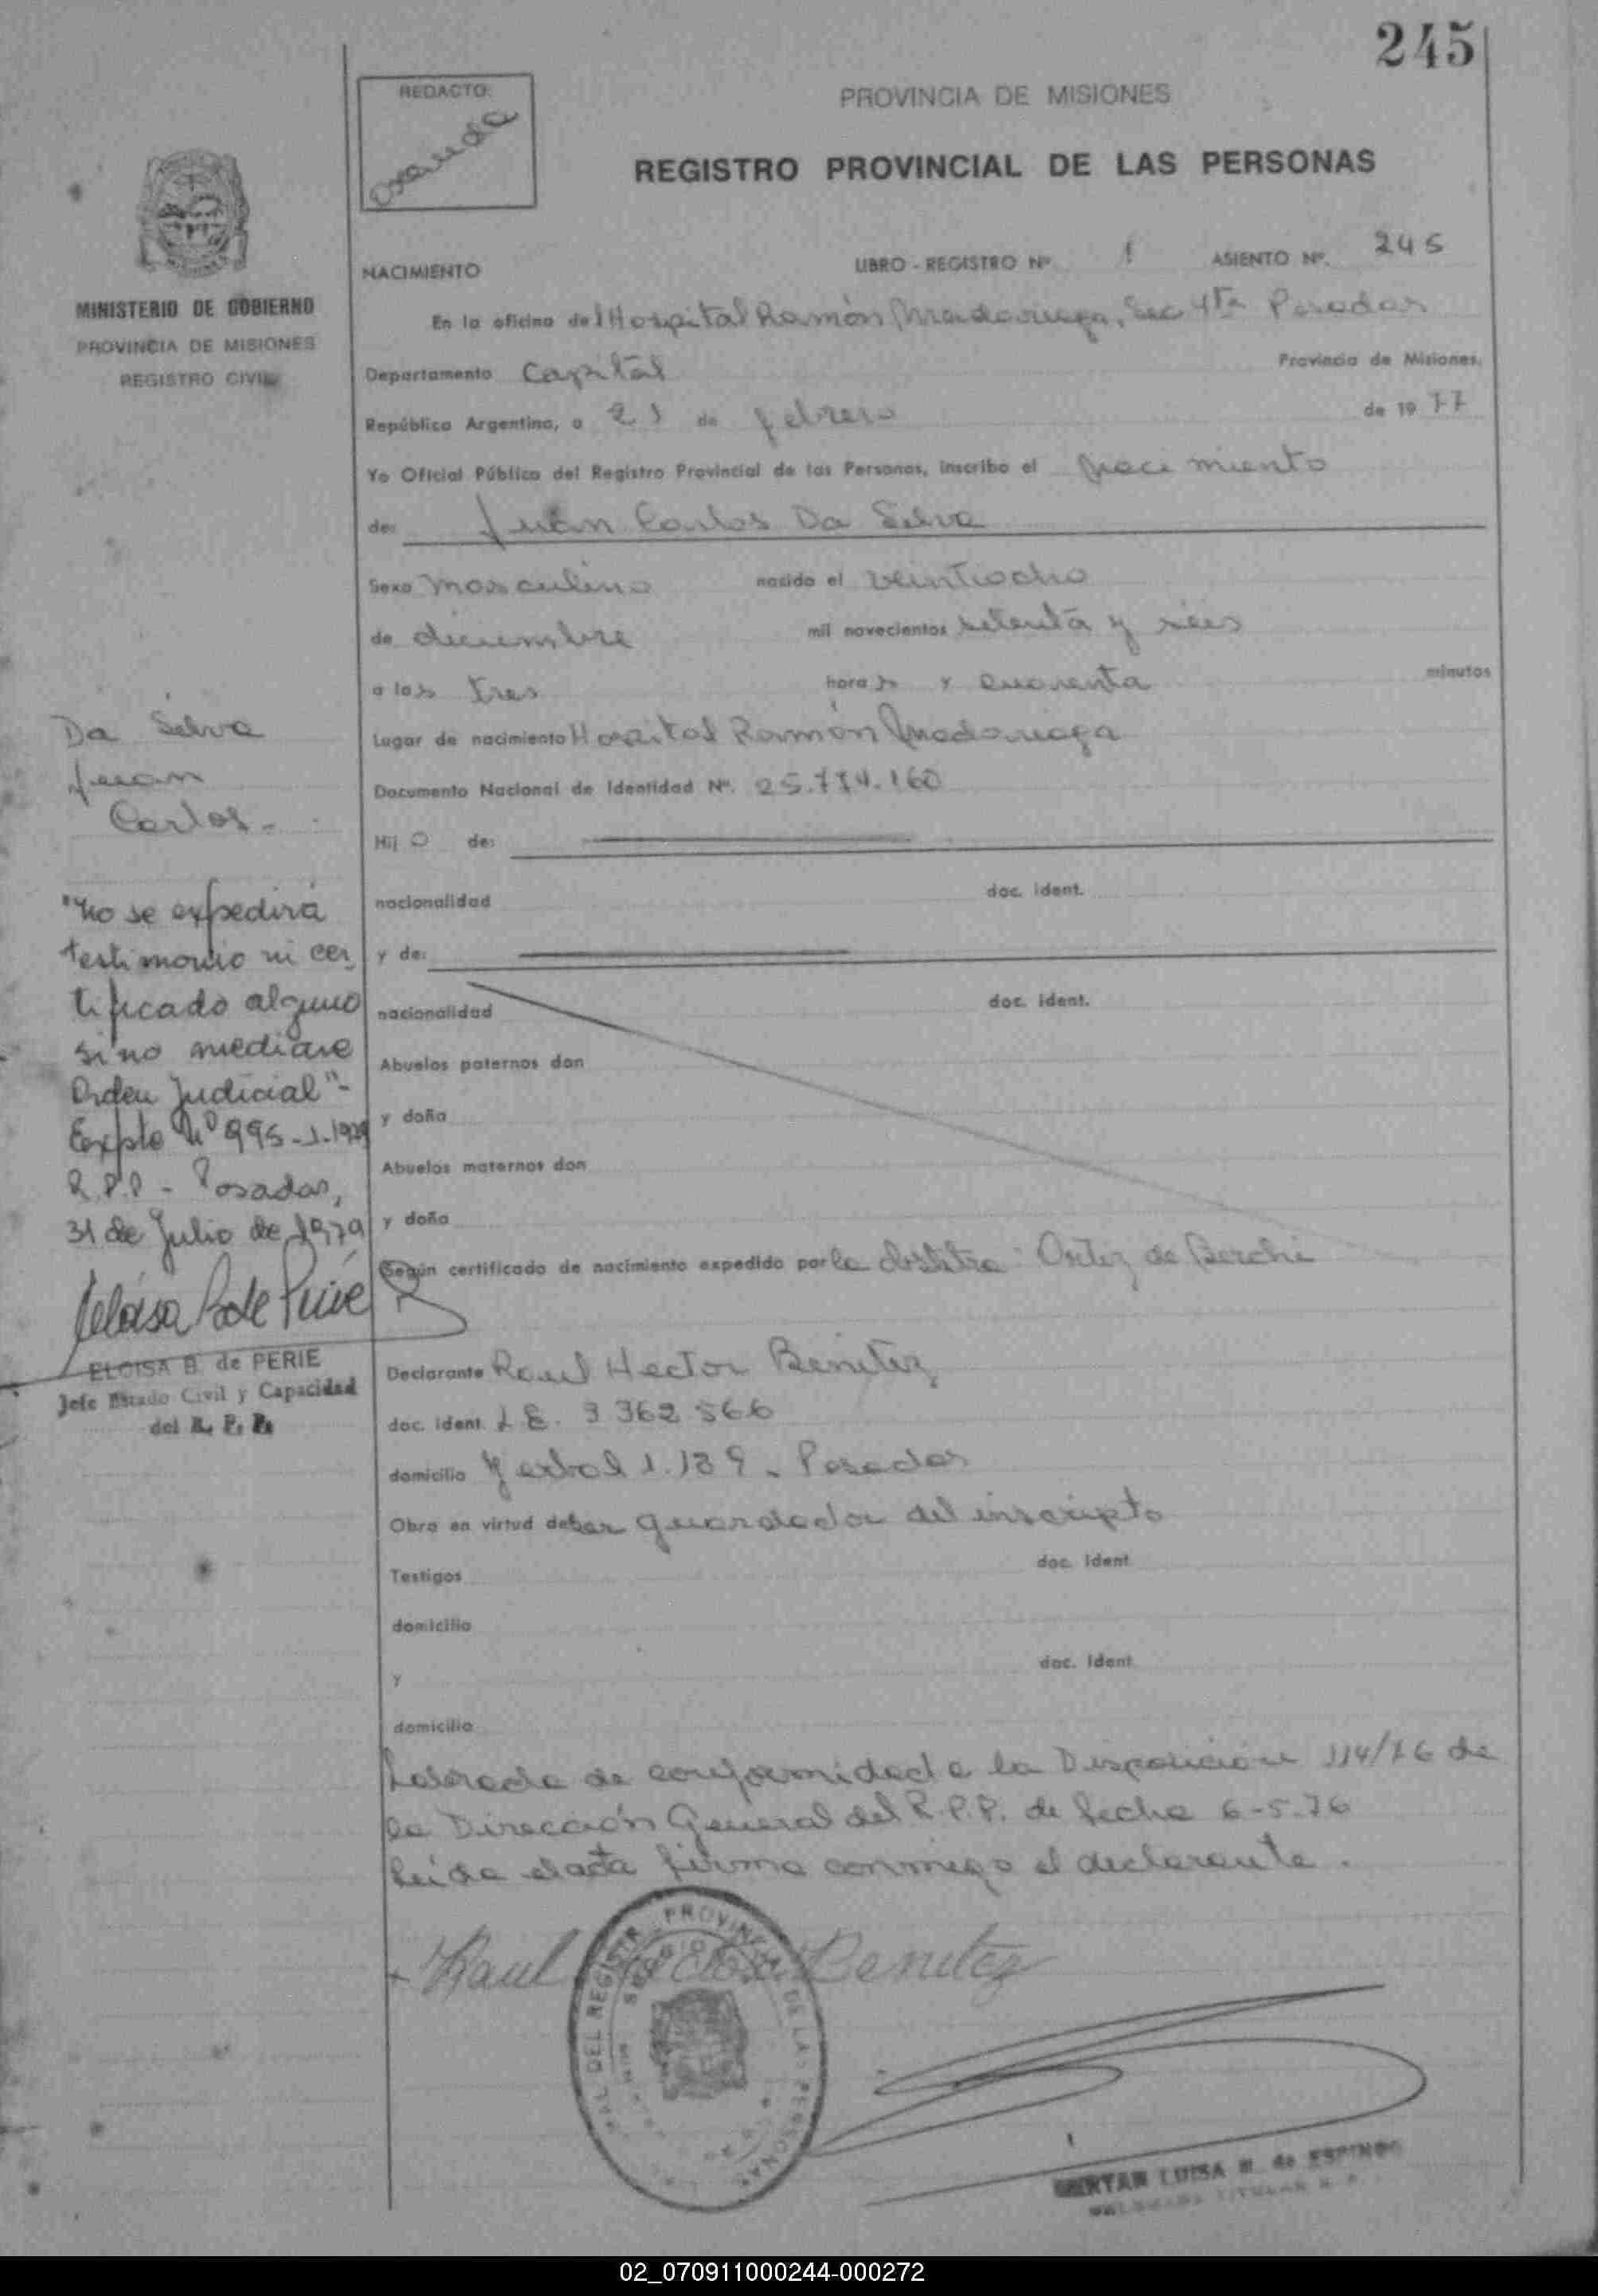 245
REDACTO:
PROVINCIA DE MISIONES
REGISTRO PROVINCIAL DE LAS PERSONAS
MINISTERIO DE GOBIERNO
PROVINCIA DE MISIONES
REGISTRO CIVIL
NACIMIENTO
LIBRO - REGISTRO Nº 1 ASIENTO Nº. 245
En la oficina del Hospital Ramón Madariaga, Sec 4ta Posadas
Departamento Capital Provincia de Misiones.
República Argentina, a 21 de febrero de 1977
Yo Oficial Público del Registro Provincial de las Personas, inscribo el nacimiento
de: Juan Carlos Da Silva
Sexo masculino nacido el veintiocho
de diciembre mil novecientos setenta y séis
a las tres horas y cuarenta minutos
Lugar de nacimiento Hospital Ramón Madariaga
Documento Nacional de Identidad Nº. 25.774.160
Hijo de:
nacionalidad doc. ident.
y de:
nacionalidad doc. ident.
Abuelos paternos don
y doña
Abuelos maternos don
y doña
Según certificado de nacimiento expedido por la obstetra: Ortiz de Berchi
Declarante Raul Hector Benitez
doc. ident. L E. 3 362 566
domicilio Yerbal 1.189 - Posadas
Obra en virtud de ser guardador del inscripto
Testigos doc. ident
domicilio
y doc. ident
domicilio
Labrada de conformidad a la Disposición 114/76 de
la Dirección General del R.P.P. de fecha 6-5-76
Leída el acta firma conmigo el declarante.
Raul Hector Benitez
Da Silva
Juan
Carlos-
"No se expedirá
testimonio ni cer-
tificado alguno
si no mediare
Orden Judicial"-
Expte Nº 995-J-1979
R.P.P - Posadas,
31 de Julio de 1979
Eloisa B de Perié
ELOISA B. de PERIE
Jefe Estado Civil y Capacidad
del R. P. P.
LUISA de ESPINO
02_070911000244-000272